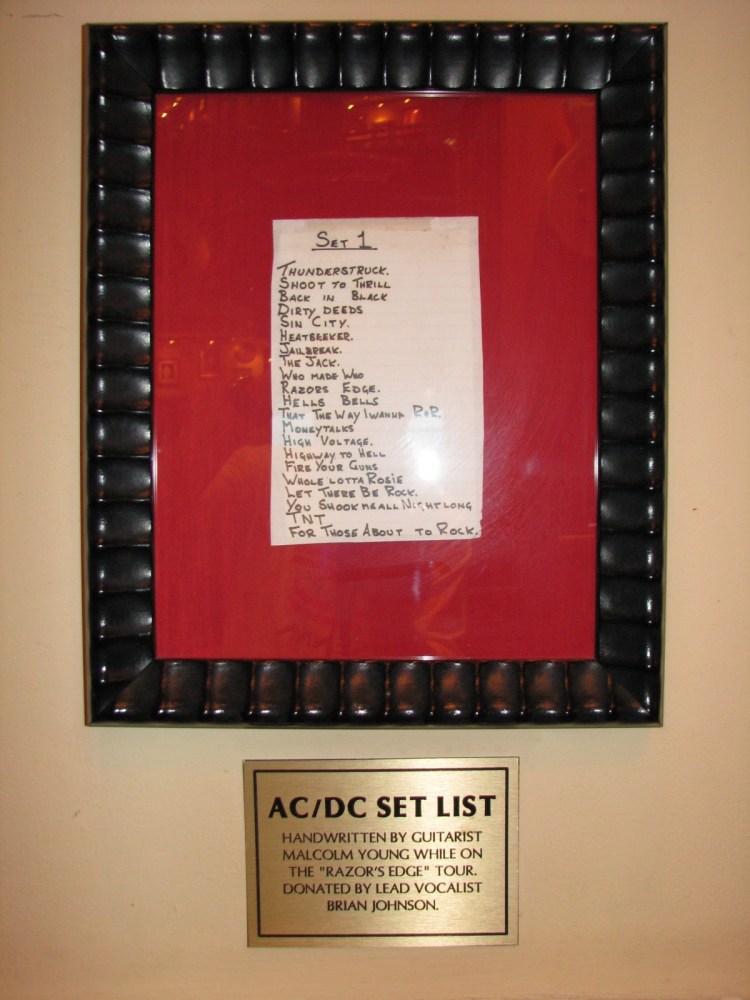 SET 1
THUNDERSTRUCK.
SHOOT TO THRILL
BACK IN BLACK
DIRTY DEEDS
SIN CITY.
HEATSEEKER.
JAILBREAK.
THE JACK.
WHO MADE WHO
RAZORS EDGE.
HELLS BELLS
THAT THE WAY I WANNA R&R.
MONEYTALKS
HIGH VOLTAGE.
HIGHWAY TO HELL
FIRE YOUR GUNS
WHOLE LOTTA ROSIE
LET THERE BE ROCK.
YOU SHOOK ME ALL NIGHT LONG
TNT
FOR THOSE ABOUT TO ROCK.
AC/DC SET LIST
HANDWRITTEN BY GUITARIST
MALCOLM YOUNG WHILE ON
THE "RAZOR'S EDGE" TOUR.
DONATED BY LEAD VOCALIST
BRIAN JOHNSON.